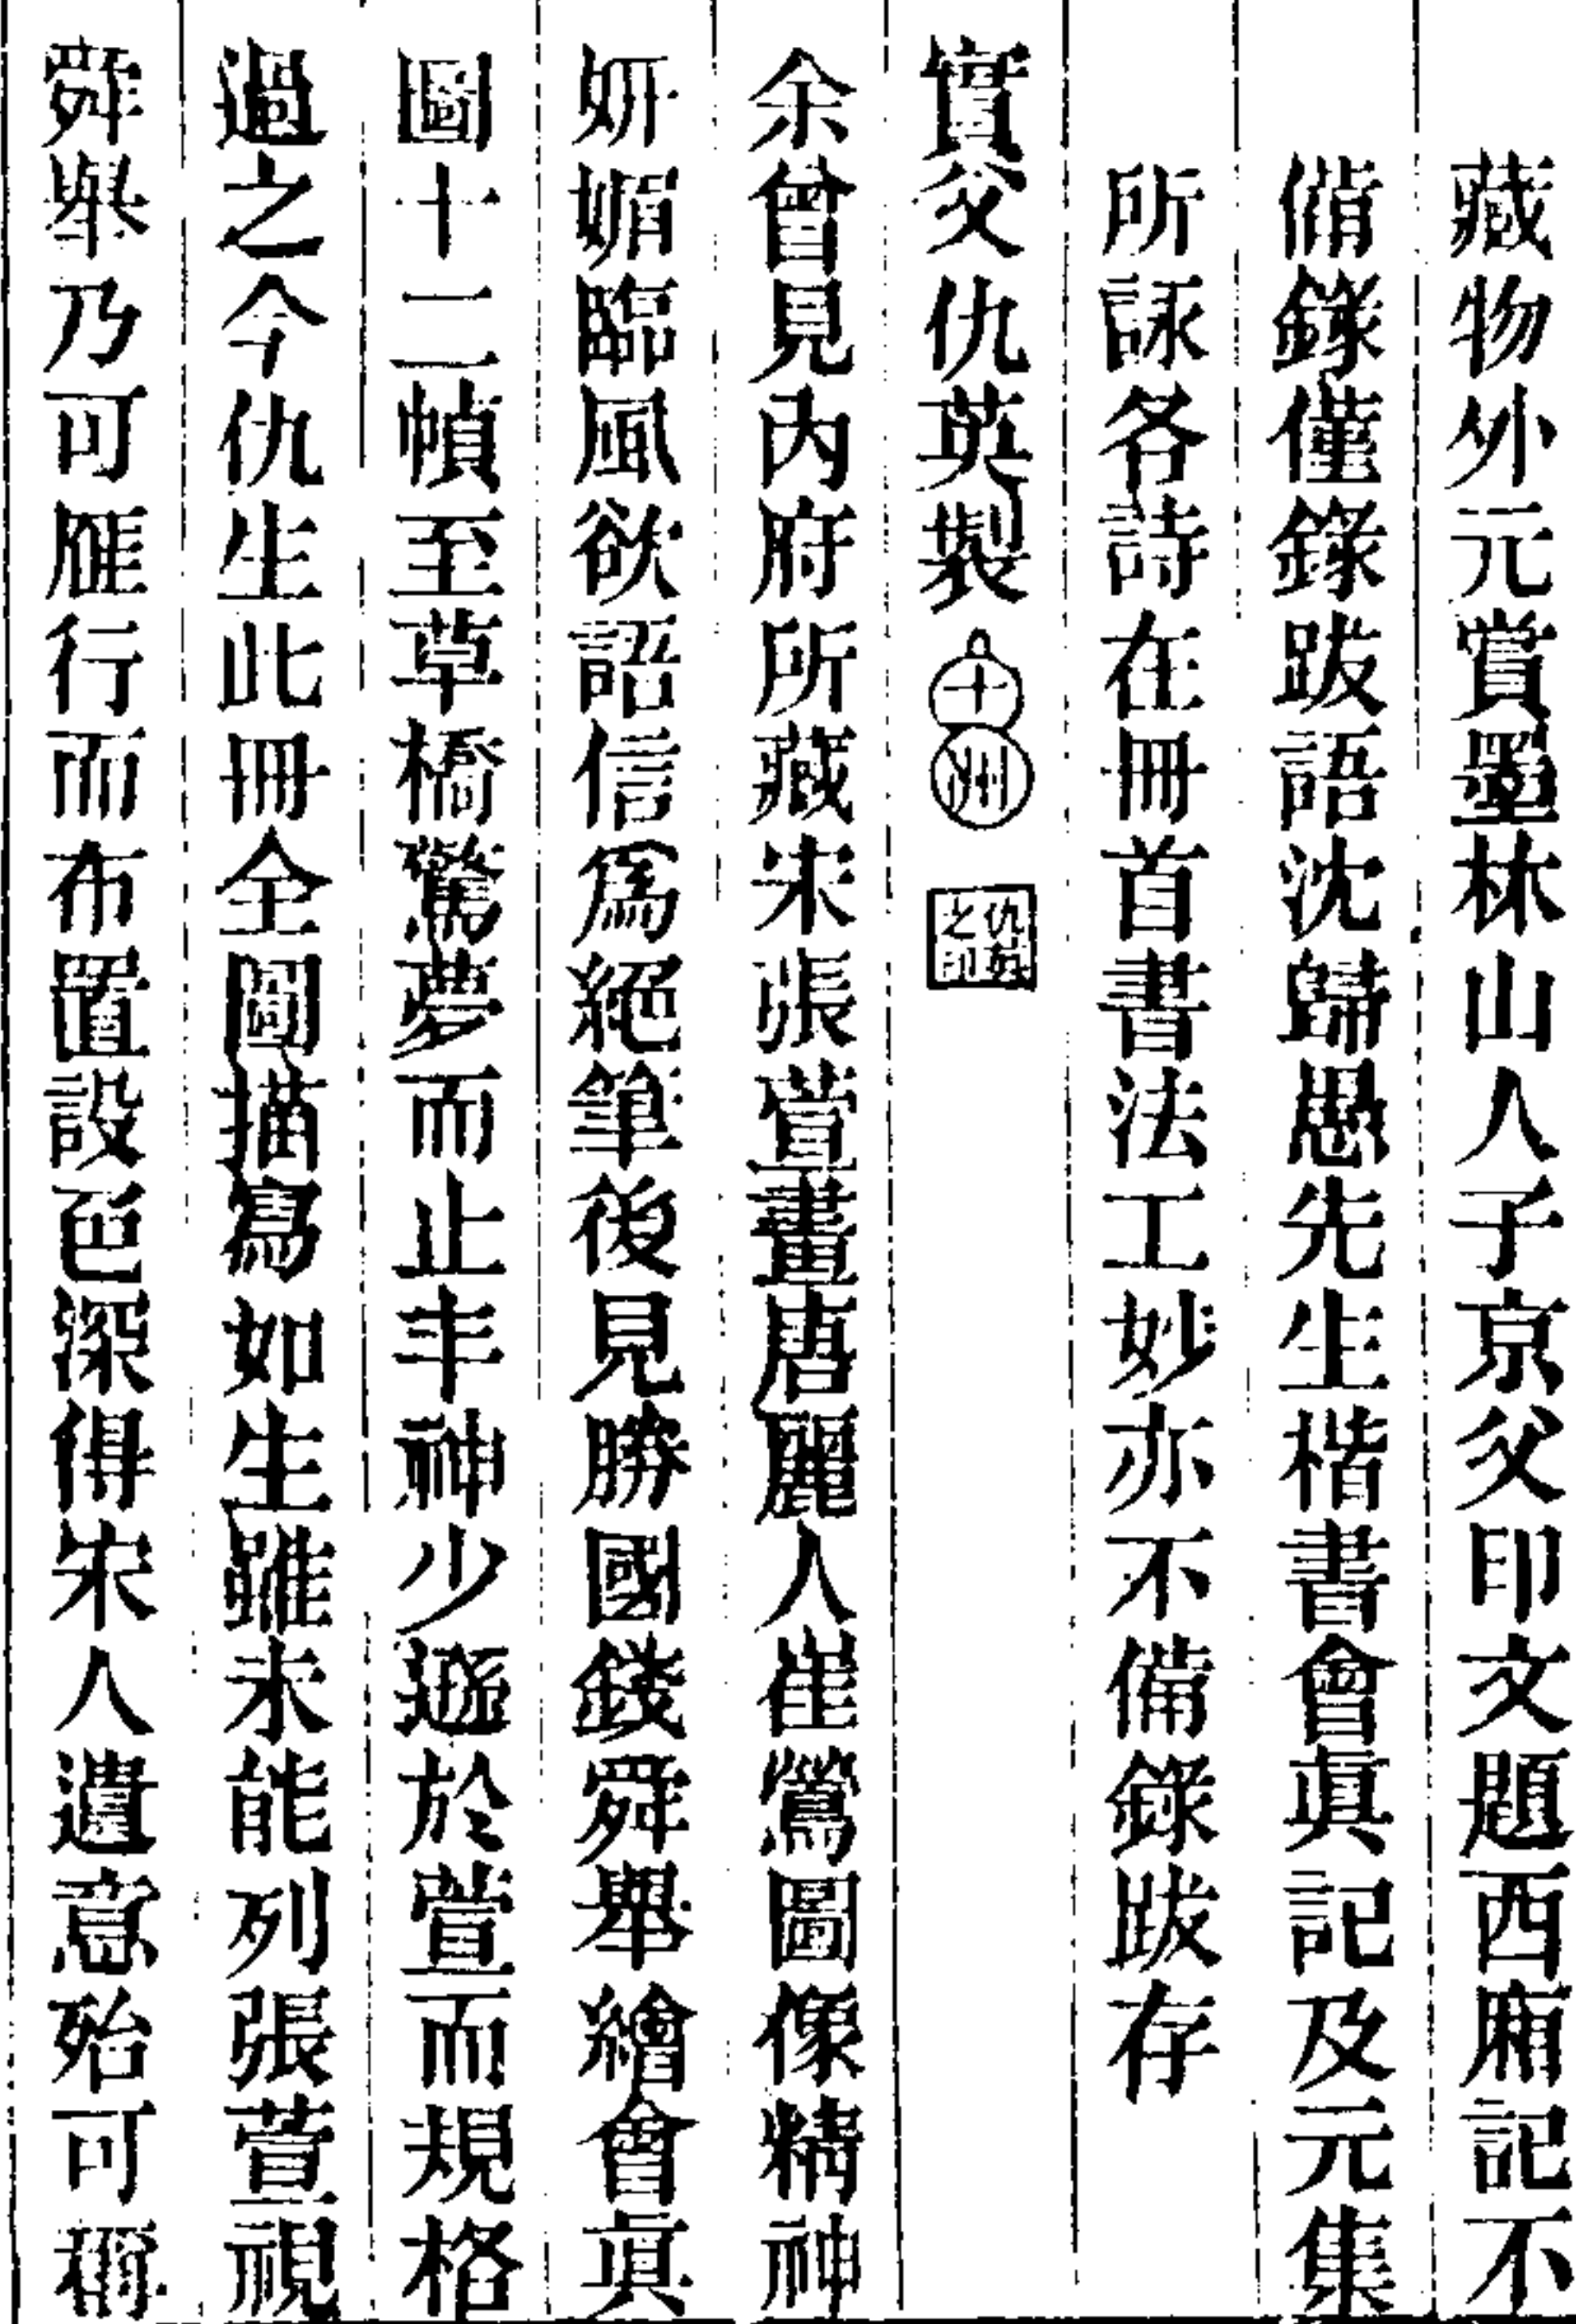 藏物外元賞墨林山人子京父印文題西廂記不
備錄僅錄跋語沈歸愚先生楷書會眞記及元集
所詠各詩在冊首書法工妙亦不備錄跋存
實父仇英製 十洲 仇英之印
余曾見內府所藏宋張萱畫唐麗人崔鶯圖像精神
妍媚臨風欲語信爲絕筆後見勝國錢舜舉繪會眞
圖十二幀至草橋驚夢而止丰神少遜於萱而規格
過之今仇生此冊全圖描寫如生雖未能列張萱視
舜舉乃可雁行而布置設色深得宋人遺意殆可稱